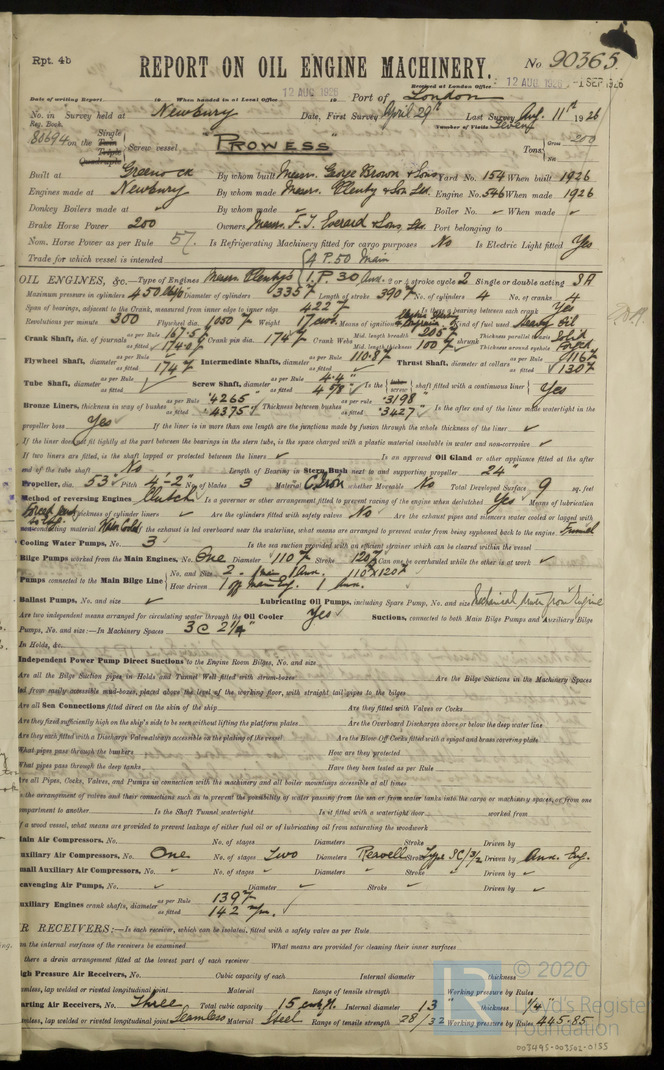 Rpt. 4b
REPORT ON OIL ENGINE MACHINERY.
No 90365
Received at London Office
12 AUG 1926 -1 SEP 1926
12 AUG 1926
Date of writing Report 19 When handed in at Local Office 19 Port of London
No. in Survey held at Newbury Date, First Survey April 29th Last Survey Aug. 11th 1926
Reg. Book. Number of Visits Seven
80694 on the Single Twin Triple Quadruple Screw vessel "PROWESS" Tons Gross 200 Net
Built at Greenock By whom built Messrs. George Brown & Sons Yard No. 154 When built 1926
Engines made at Newbury By whom made Messrs. Plenty & Son Ltd. Engine No. 546 When made 1926
Donkey Boilers made at ✓ By whom made ✓ Boiler No. ✓ When made ✓
Brake Horse Power 200 Owners Messrs. F. T. Everard & Sons, Ltd. Port belonging to
Nom. Horse Power as per Rule 57. Is Refrigerating Machinery fitted for cargo purposes No Is Electric Light fitted Yes
Trade for which vessel is intended
4 P. 50 Main
1. P. 30 Aux.
OIL ENGINES, &c.—Type of Engines Messrs. Plenty's 2 or 4 stroke cycle 2 Single or double acting SA
Maximum pressure in cylinders 450 Diameter of cylinders 335 Length of stroke 390 No. of cylinders 4 No. of cranks 4
Span of bearings, adjacent to the Crank, measured from inner edge to inner edge 422 Is there a bearing between each crank Yes
Revolutions per minute 300 Flywheel dia. 1050 Weight 17 cwt Means of ignition Kind of fuel used Heavy Oil
Crank Shaft, dia. of journals as per Rule 167.5 as fitted 174 Crank pin dia. 174 Crank Webs Mid. length breadth 205 Mid. length thickness 100 shrunk Thickness parallel to axis Solid Thickness around eyehole Forged
Flywheel Shaft, diameter as per Rule ✓ as fitted 174 Intermediate Shafts, diameter as per Rule 110.8 as fitted Thrust Shaft, diameter at collars as per Rule 116 as fitted 130
Tube Shaft, diameter as per Rule as fitted ✓ Screw Shaft, diameter as per Rule 4.4" as fitted 4 5/8" Is the tube screw shaft fitted with a continuous liner Yes
Bronze Liners, thickness in way of bushes as per Rule .4265 as fitted .4375" Thickness between bushes as per rule .3198 as fitted .3427" Is the after end of the liner made watertight in the
propeller boss Yes If the liner is in more than one length are the junctions made by fusion through the whole thickness of the liner ✓
If the liner does not fit tightly at the part between the bearings in the stern tube, is the space charged with a plastic material insoluble in water and non-corrosive ✓
If two liners are fitted, is the shaft lapped or protected between the liners ✓ Is an approved Oil Gland or other appliance fitted at the after
end of the tube shaft No Length of Bearing in Stern Bush next to and supporting propeller 24"
Propeller, dia. 53" Pitch 4'-2" No. of blades 3 Material C. Iron whether Moveable No Total Developed Surface 9 sq. feet
Method of reversing Engines Clutch Is a governor or other arrangement fitted to prevent racing of the engine when declutched Yes Means of lubrication
Forced Thickness of cylinder liners ✓ Are the cylinders fitted with safety valves No Are the exhaust pipes and silencers water cooled or lagged with
non-conducting material Water Cooled If the exhaust is led overboard near the waterline, what means are arranged to prevent water from being syphoned back to the engine Funnel
Cooling Water Pumps, No. 3 Is the sea suction provided with an efficient strainer which can be cleared within the vessel
Bilge Pumps worked from the Main Engines, No. One Diameter 110 Stroke 120 Can one be overhauled while the other is at work ✓
Pumps connected to the Main Bilge Line No. and Size 2. 1 main 1 Aux. 110 x 120 How driven 1 off main Eng. 1 Aux.
Ballast Pumps, No. and size ✓ Lubricating Oil Pumps, including Spare Pump, No. and size Mechanical driven from Engine
Are two independent means arranged for circulating water through the Oil Cooler Yes Suctions, connected to both Main Bilge Pumps and Auxiliary Bilge
Pumps, No. and size:—In Machinery Spaces 3 @ 2 1/4"
In Holds, &c.
Independent Power Pump Direct Suctions to the Engine Room Bilges, No. and size
Are all the Bilge Suction pipes in Holds and Tunnel Well fitted with strum-boxes Are the Bilge Suctions in the Machinery Spaces
led from easily accessible mud-boxes, placed above the level of the working floor, with straight tail pipes to the bilges
Are all Sea Connections fitted direct on the skin of the ship Are they fitted with Valves or Cocks
Are they fixed sufficiently high on the ship's side to be seen without lifting the platform plates Are the Overboard Discharges above or below the deep water line
Are they each fitted with a Discharge Valve always accessible on the plating of the vessel Are the Blow Off Cocks fitted with a spigot and brass covering plate
What pipes pass through the bunkers How are they protected
What pipes pass through the deep tanks Have they been tested as per Rule
Are all Pipes, Cocks, Valves, and Pumps in connection with the machinery and all boiler mountings accessible at all times
s the arrangement of valves and their connections such as to prevent the possibility of water passing from the sea or from water tanks into the cargo or machinery spaces, or from one
ompartment to another Is the Shaft Tunnel watertight Is it fitted with a watertight door worked from
f a wood vessel, what means are provided to prevent leakage of either fuel oil or of lubricating oil from saturating the woodwork
Main Air Compressors, No. No. of stages Diameters Stroke Driven by
uxiliary Air Compressors, No. One No. of stages Two Diameters Reavell Stroke Type SC/3½ Driven by Aux. Eng.
mall Auxiliary Air Compressors, No. ✓ No. of stages ✓ Diameters ✓ Stroke ✓ Driven by ✓
cavenging Air Pumps, No. ✓ Diameter ✓ Stroke ✓ Driven by ✓
uxiliary Engines crank shafts, diameter as per Rule 139 as fitted 142 m/m.
R RECEIVERS:—Is each receiver, which can be isolated, fitted with a safety valve as per Rule
n the internal surfaces of the receivers be examined What means are provided for cleaning their inner surfaces
there a drain arrangement fitted at the lowest part of each receiver
igh Pressure Air Receivers, No. Cubic capacity of each Internal diameter thickness
mless, lap welded or riveted longitudinal joint Material Range of tensile strength Working pressure by Rules
arting Air Receivers, No. Three Total cubic capacity 15 cub. ft. Internal diameter 13" thickness 1/4"
mless, lap welded or riveted longitudinal joint Seamless Material Steel Range of tensile strength 28/32 Working pressure by Rules 445.85
© 2020
Lloyd's Register
Foundation
003495-003502-0155